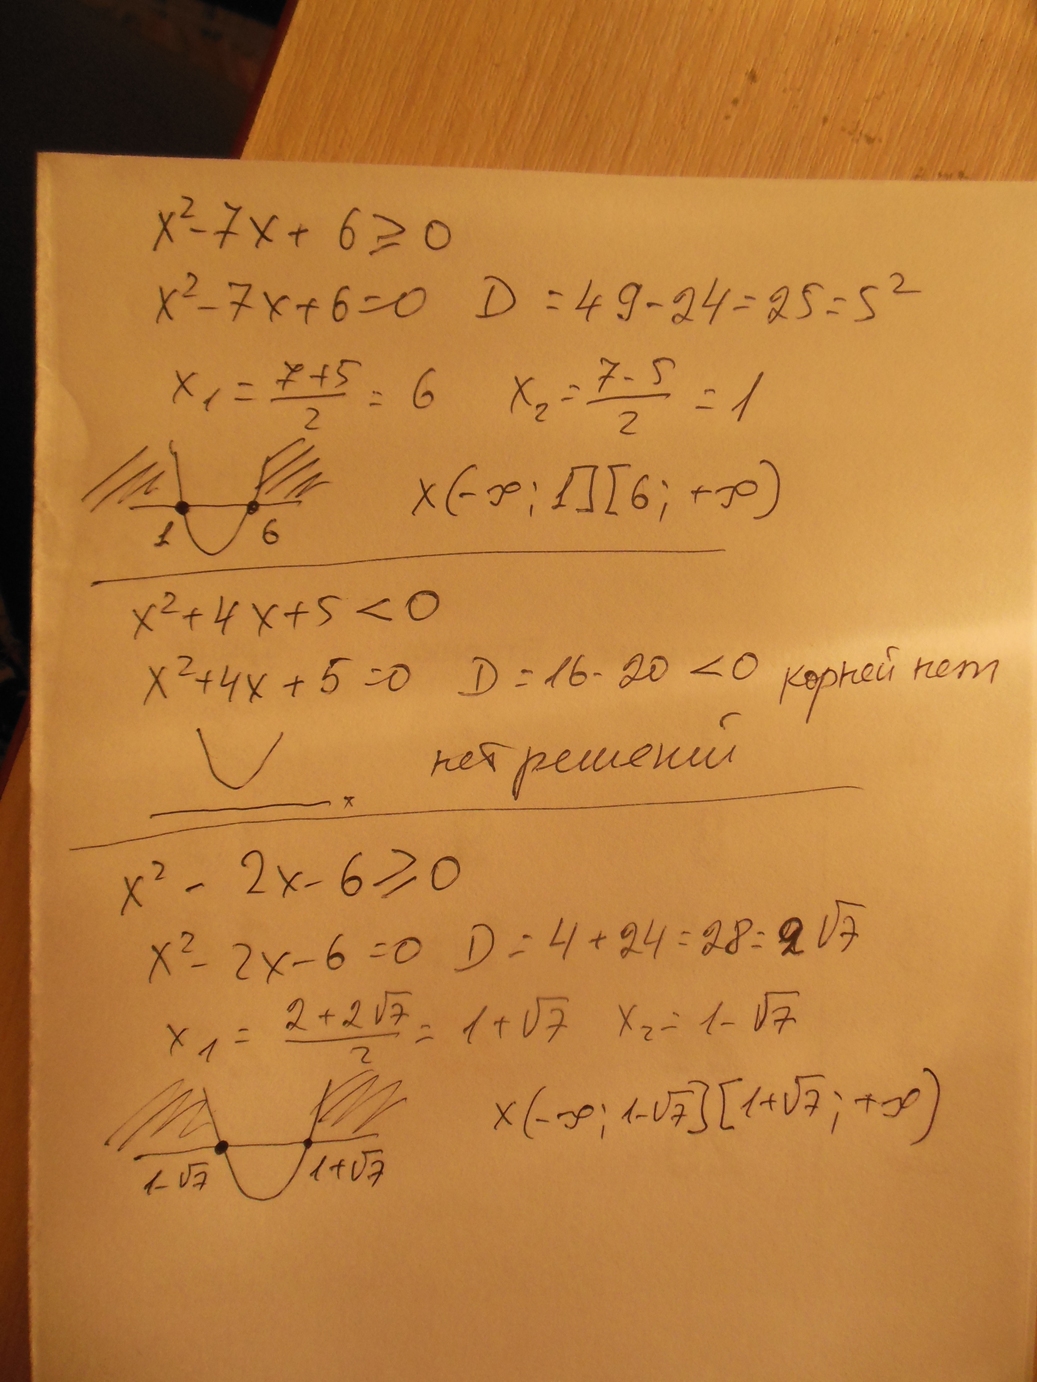 x²-7x+6≥0
x²-7x+6=0 D=49-24=25=5²
x₁=(7+5)/2=6 x₂=(7-5)/2=1
x(-∞;1][6;+∞)
1 6
x²+4x+5<0
x²+4x+5=0 D=16-20<0 корней нет
нет решений
x
x²-2x-6≥0
x²-2x-6=0 D=4+24=28=2√7
x₁=(2+2√7)/2=1+√7 x₂=1-√7
x(-∞;1-√7][1+√7;+∞)
1-√7 1+√7